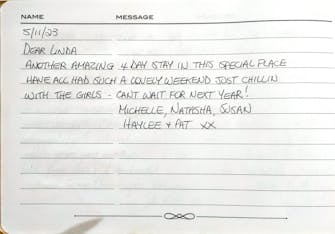 NAME MESSAGE
5/11/23
DEAR LINDA
ANOTHER AMAZING 4 DAY STAY IN THIS SPECIAL PLACE
HAVE ALL HAD SUCH A LOVELY WEEKEND JUST CHILLIN
WITH THE GIRLS - CANT WAIT FOR NEXT YEAR!
MICHELLE, NATASHA, SUSAN
HAYLEE + PAT XX